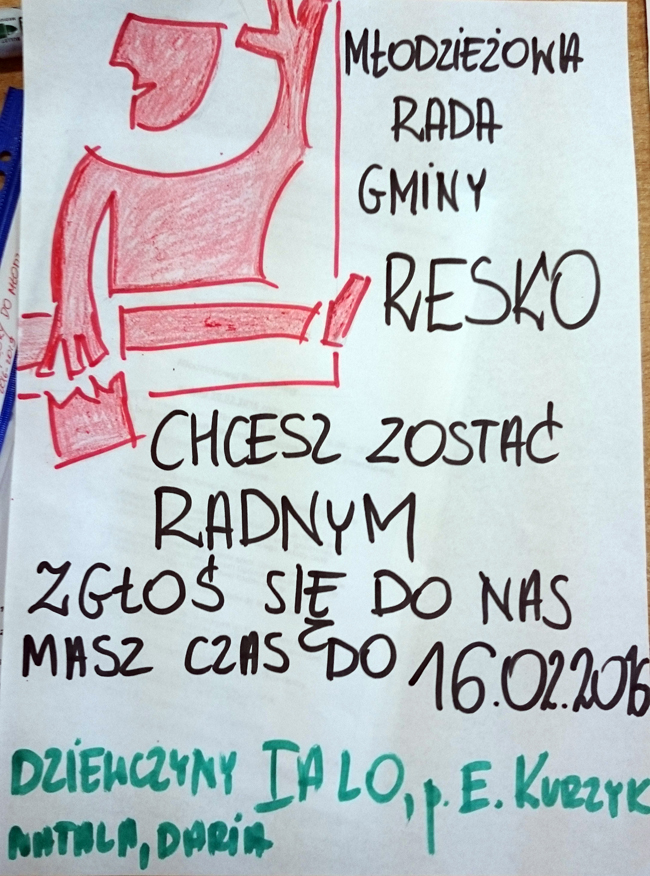 MŁODZIEŻOWA
RADA
GMINY
RESKO
CHCESZ ZOSTAĆ
RADNYM
ZGŁOŚ SIĘ DO NAS
MASZ CZAS DO 16.02.2016
DZIEWCZYNY I A LO, p. E. KURZYK
NATALA, DARIA